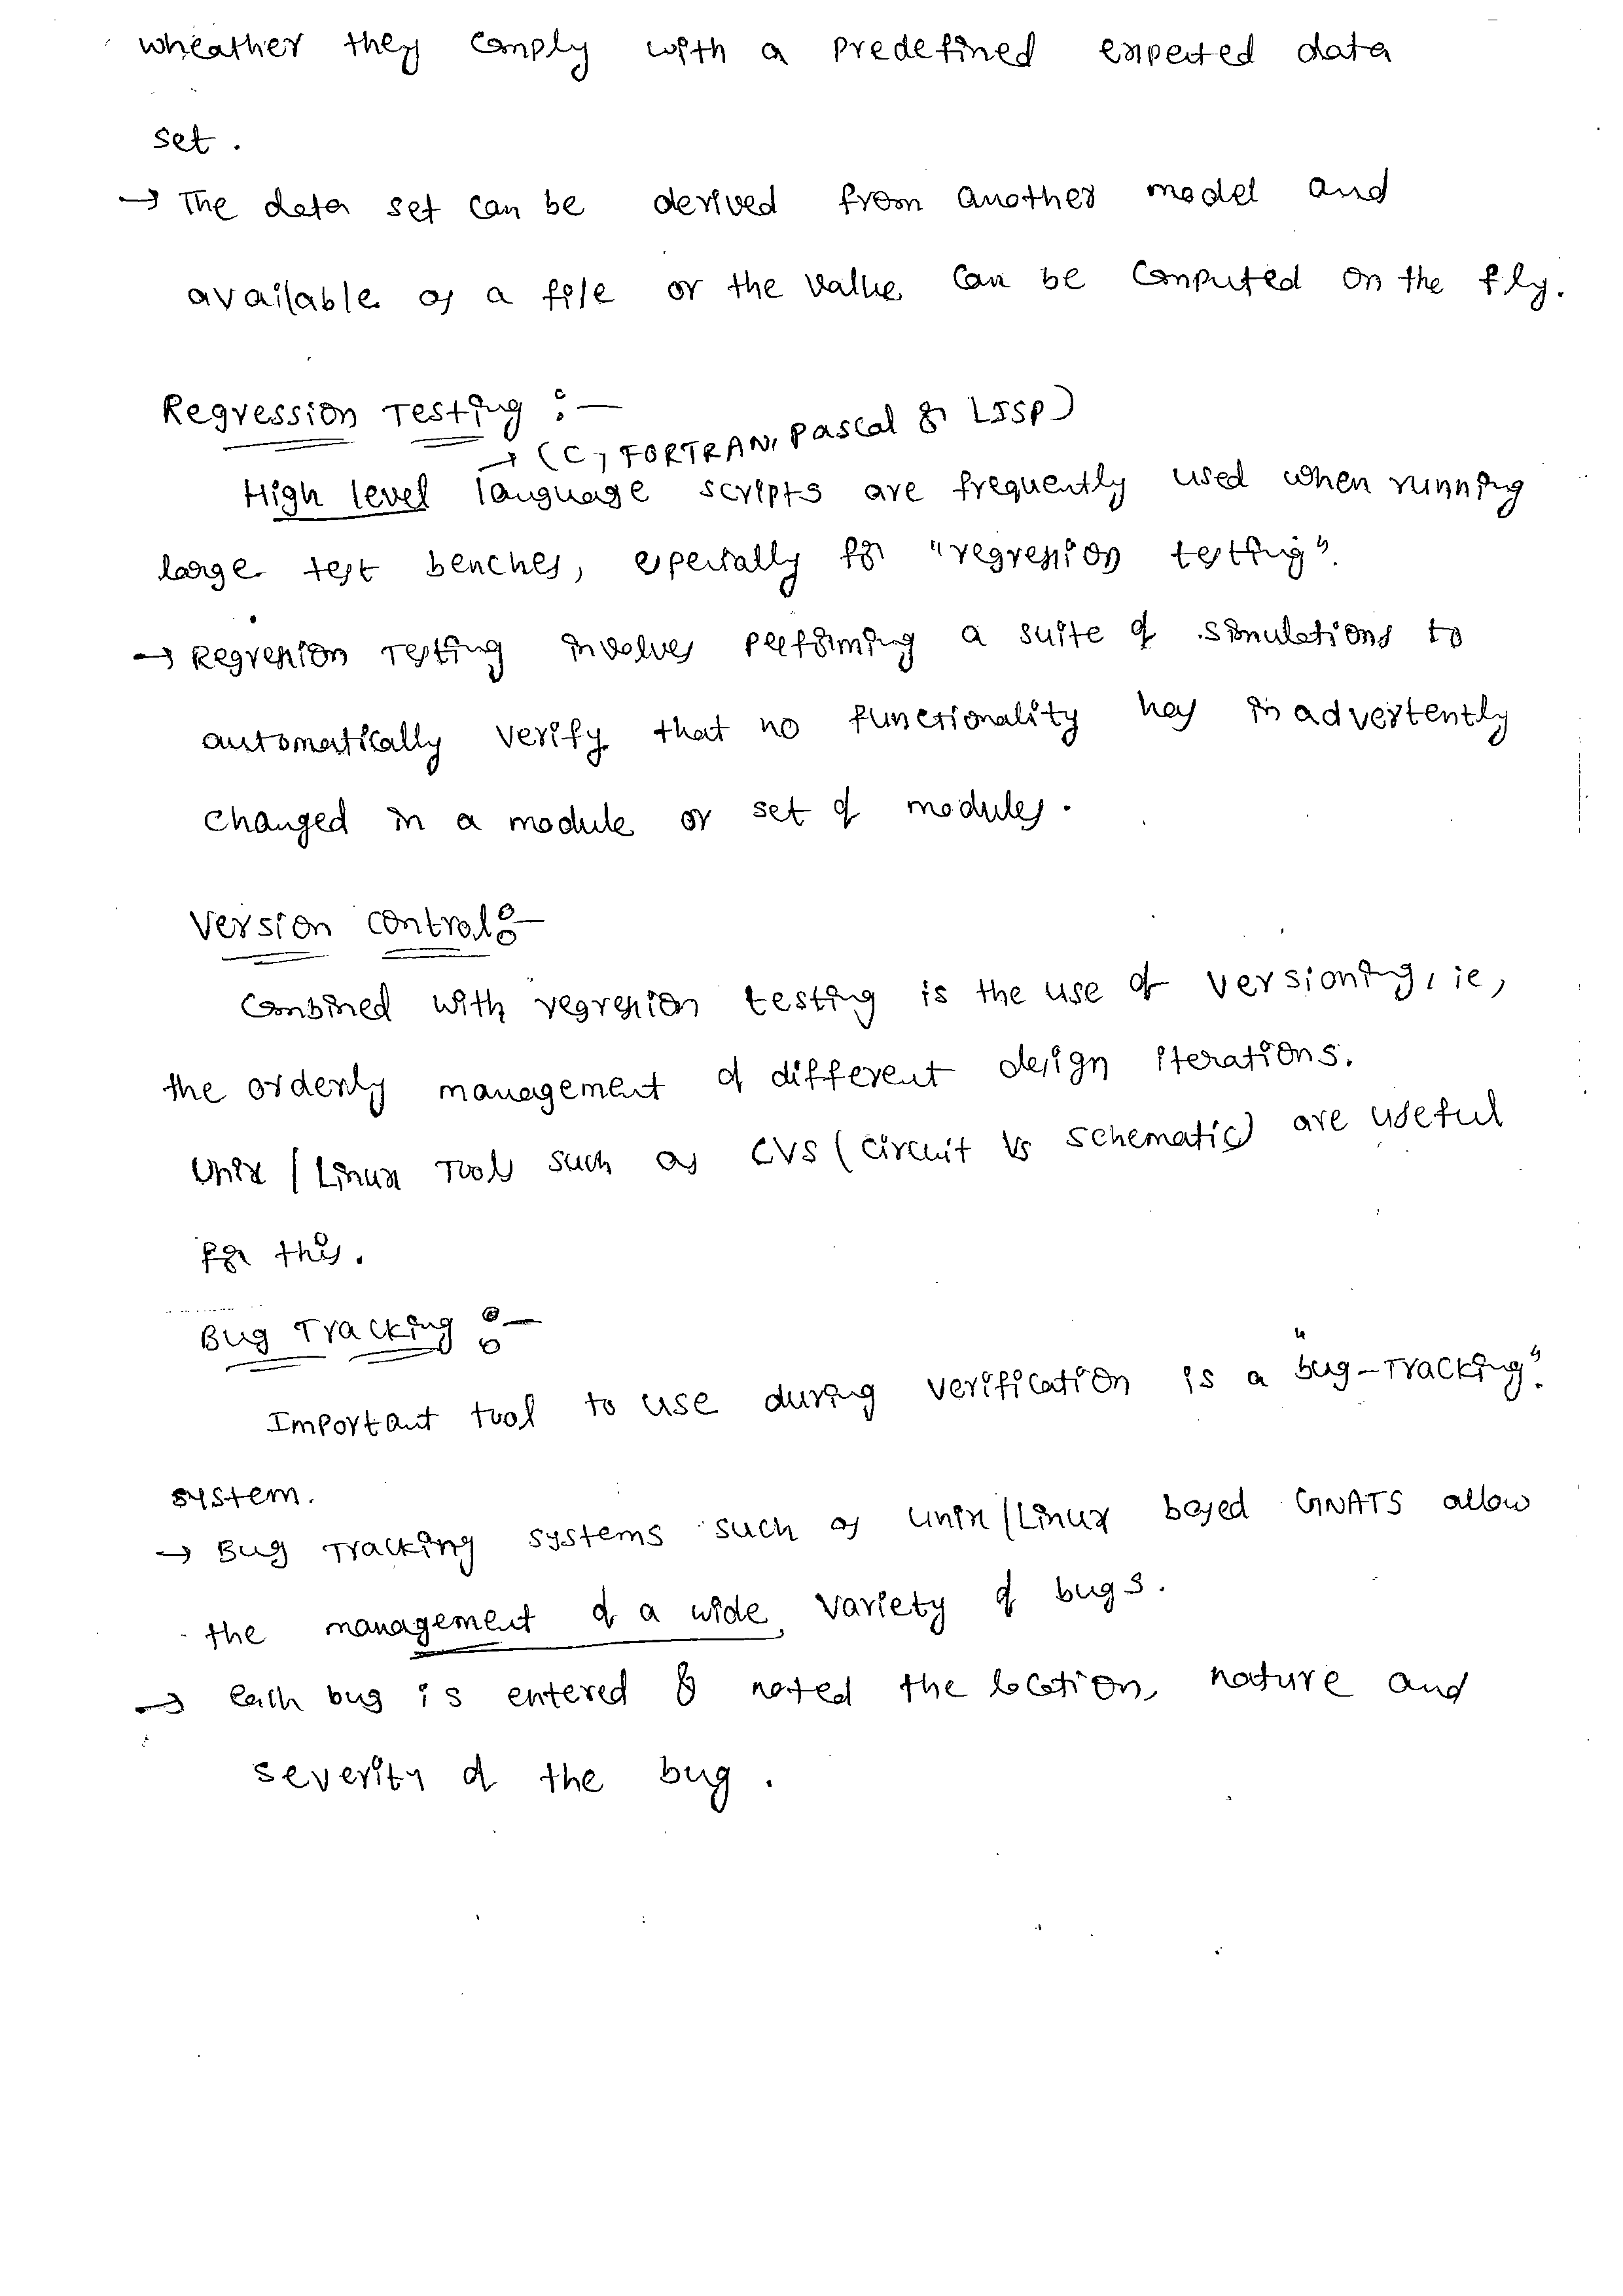 wheather they comply with a predefined expected data
set.
→ The data set can be derived from another model and
available as a file or the value can be computed on the fly.
Regression Testing :-
→ (C, FORTRAN, Pascal or LISP)
High level language scripts are frequently used when running
large test benches, especially for "regression testing".
→ Regression Testing involves performing a suite of simulations to
automatically verify that no functionality has inadvertently
changed in a module or set of modules.
Version control:-
Combined with regression testing is the use of versioning, ie,
the orderly management of different design iterations.
Unix / Linux Tools such as CVS (Circuit Vs Schematic) are useful
for this.
Bug Tracking :-
Important tool to use during verification is a "bug-Tracking".
system.
→ Bug Tracking systems such as Unix/Linux based GNATS allow
the management of a wide variety of bugs.
→ Each bug is entered & noted the location, nature and
severity of the bug.